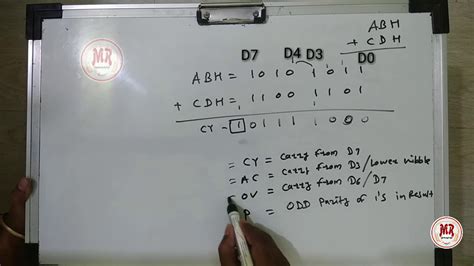 ABH
+ CDH
D7 D4 D3 D0
ABH = 1010 1011
+ CDH = 1100 1101
CY - 1 0111 1000
= CY = Carry from D7
= AC = Carry from D3/Lower nibble
= OV = Carry from D6/D7
P = ODD Parity of 1's in Result
MR
MR